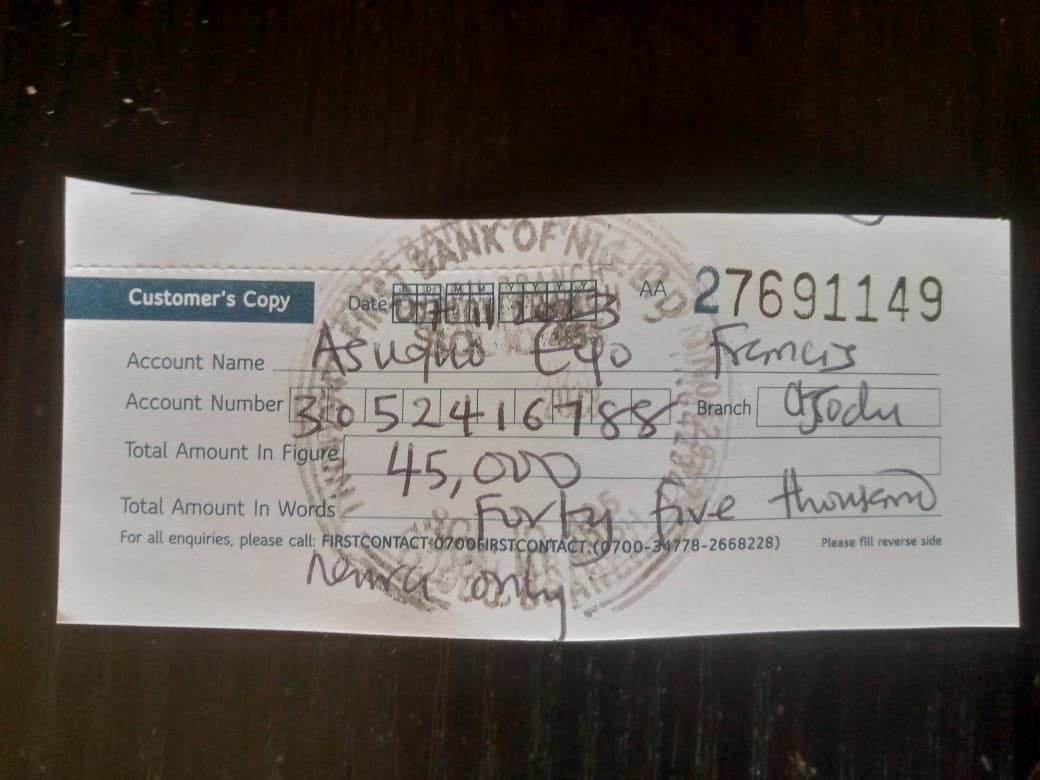 BANK OF NIG.
Customer's Copy
Date D D M M Y Y Y Y 07 11 2023
AA 27691149
Account Name Asuquo Eyo Francis
Account Number 3052416788 Branch
Total Amount In Figure 45,000
Total Amount In Words Forty five thousand
For all enquiries, please call: FIRSTCONTACT 0700FIRSTCONTACT.(0700-34778-2668228) Please fill reverse side
naira only